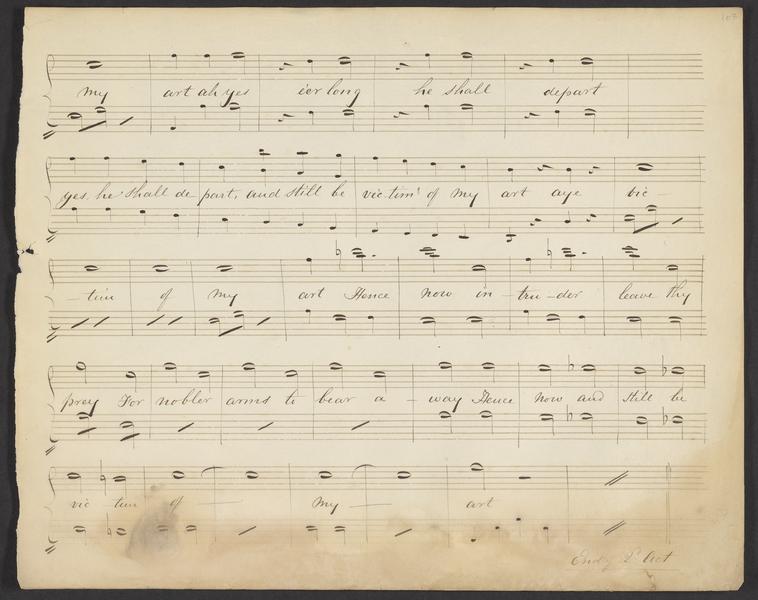 107
my art ah yes e'er long he shall depart
yes, he shall de part, and still be vic-tim of my art aye vic -
- tim of my art Hence now in - tru - der leave thy
prey For nobler arms to bear a - way Hence now and still be
vic - tim of — my — art
End of Act